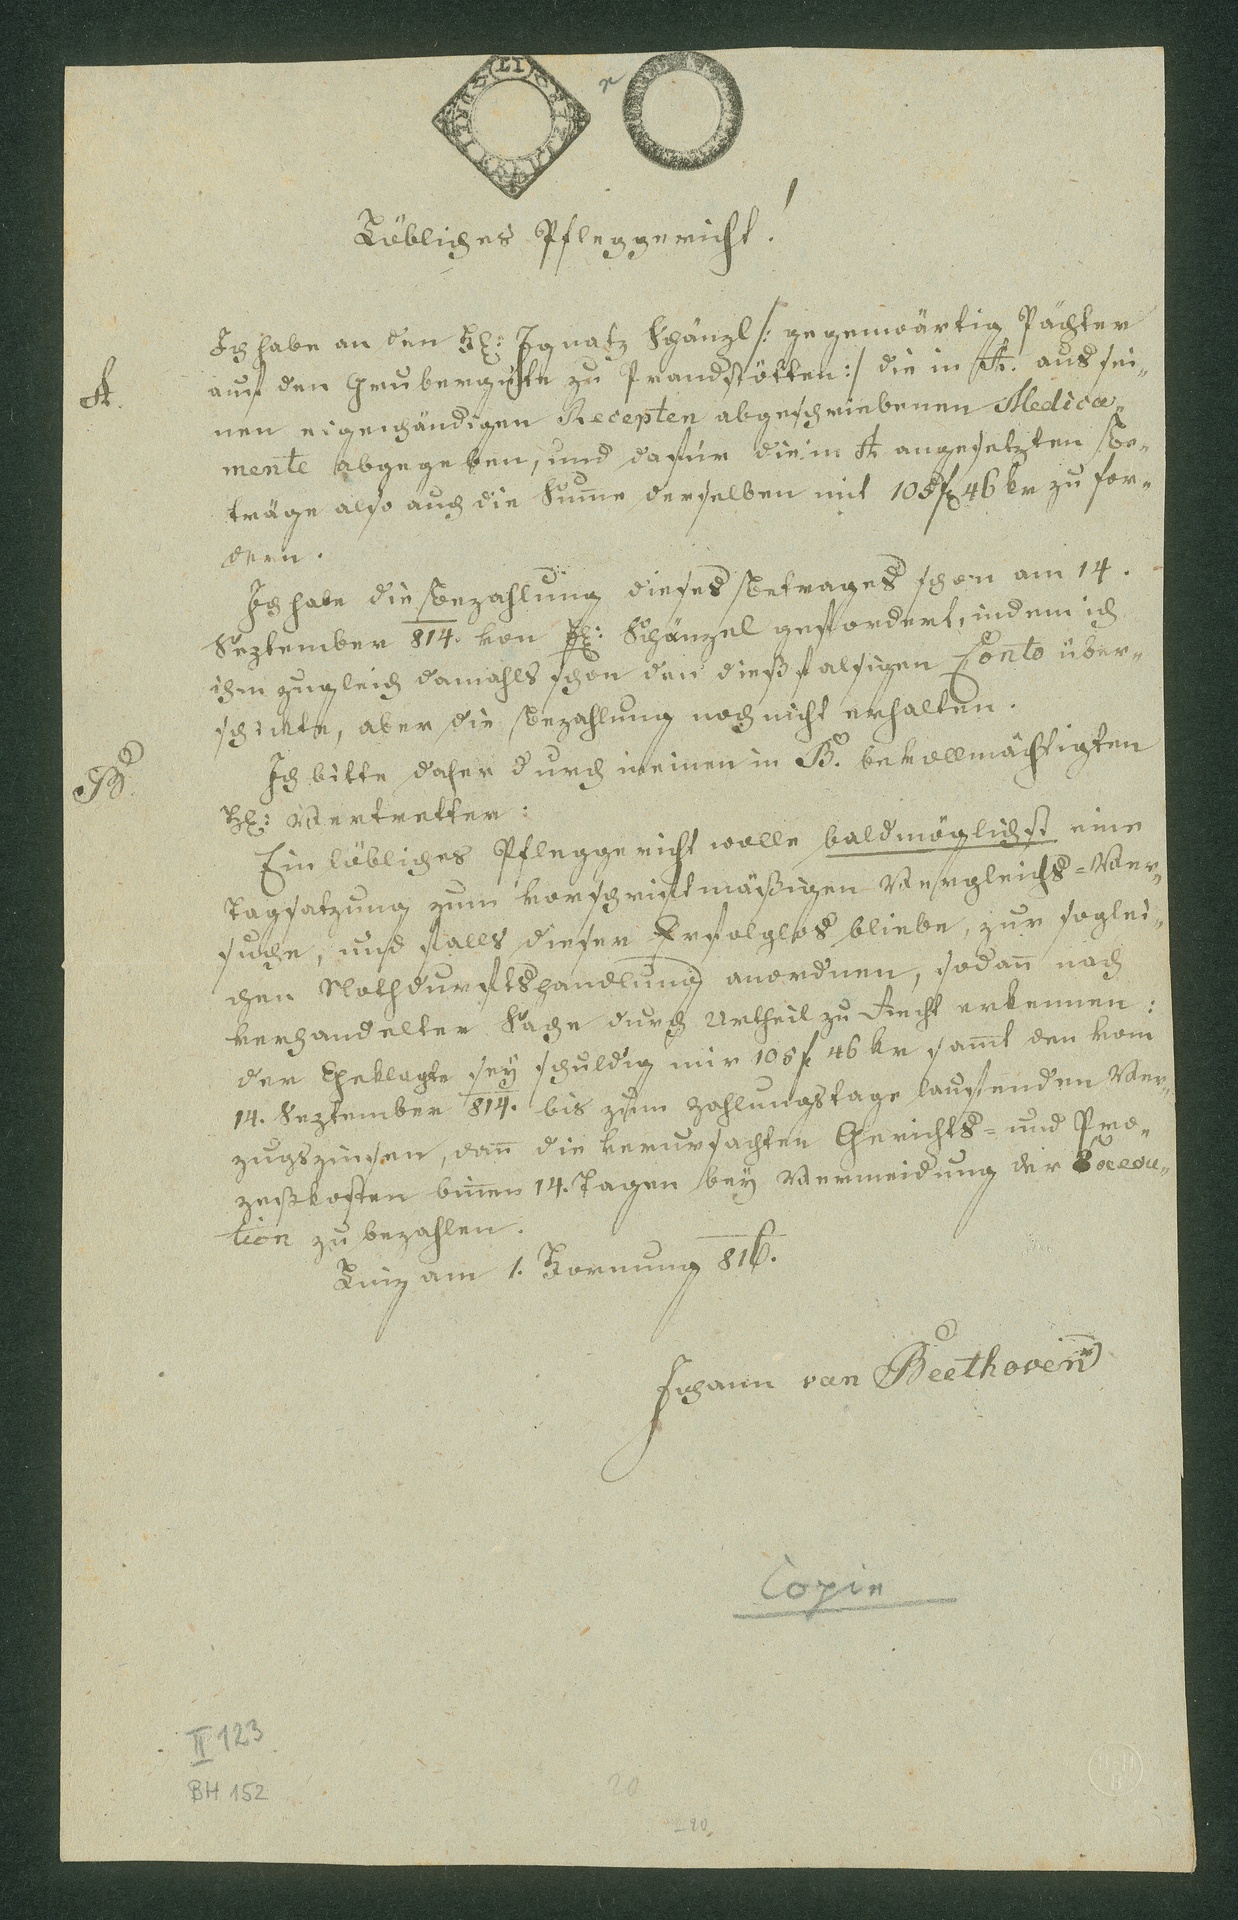 Löbliches Pfleggericht!
Ich habe an den H: Ignatz Schänzl /: gegenwärtig Pächter
A. auf den Grubergute zu Prandstötten :/ die in A. aus sei-
nen eigenhändigen Recepten abgeschriebenen Medica-
mente abgegeben, und dafür die in A angesetzten Be-
träge also auch die Sum̄e derselben mit 105 f 46 kr zu for-
dern.
Ich habe die Bezahlung dieses Betrages schon am 14.
September 814. von H: Schänzel gefordert, indem ich
ihm zugleich damahls schon den dießfalsigen Conto über-
schickte, aber die Bezahlung noch nicht erhalten.
B. Ich bitte daher durch meinen in B. bevollmächtigten
H: Vertretter:
Ein löbliches Pfleggericht wolle baldmöglichst eine
Tagsatzung zum vorschriftmäßigen Vergleichs=Ver-
suche, und falls dieser Erfolglos bliebe, zur soglei-
chen Nothdurftshandlung anordnen, sodan̄ nach
verhandelter Sache durch Urtheil zu Recht erkennen:
der Geklagte sey schuldig mir 105 f 46 kr sam̄t den vom
14. September 814. bis zum Zahlungstage laufenden Ver-
zugszinsen, dan̄ die verursachten Gerichts= und Pro-
zeßkosten bin̄en 14. Tagen bey Vermeidung der Execu-
tion zu bezahlen.
Linz am 1. Hornung 816.
Johann van Beethoven
Copie
II 123
BH 152
20